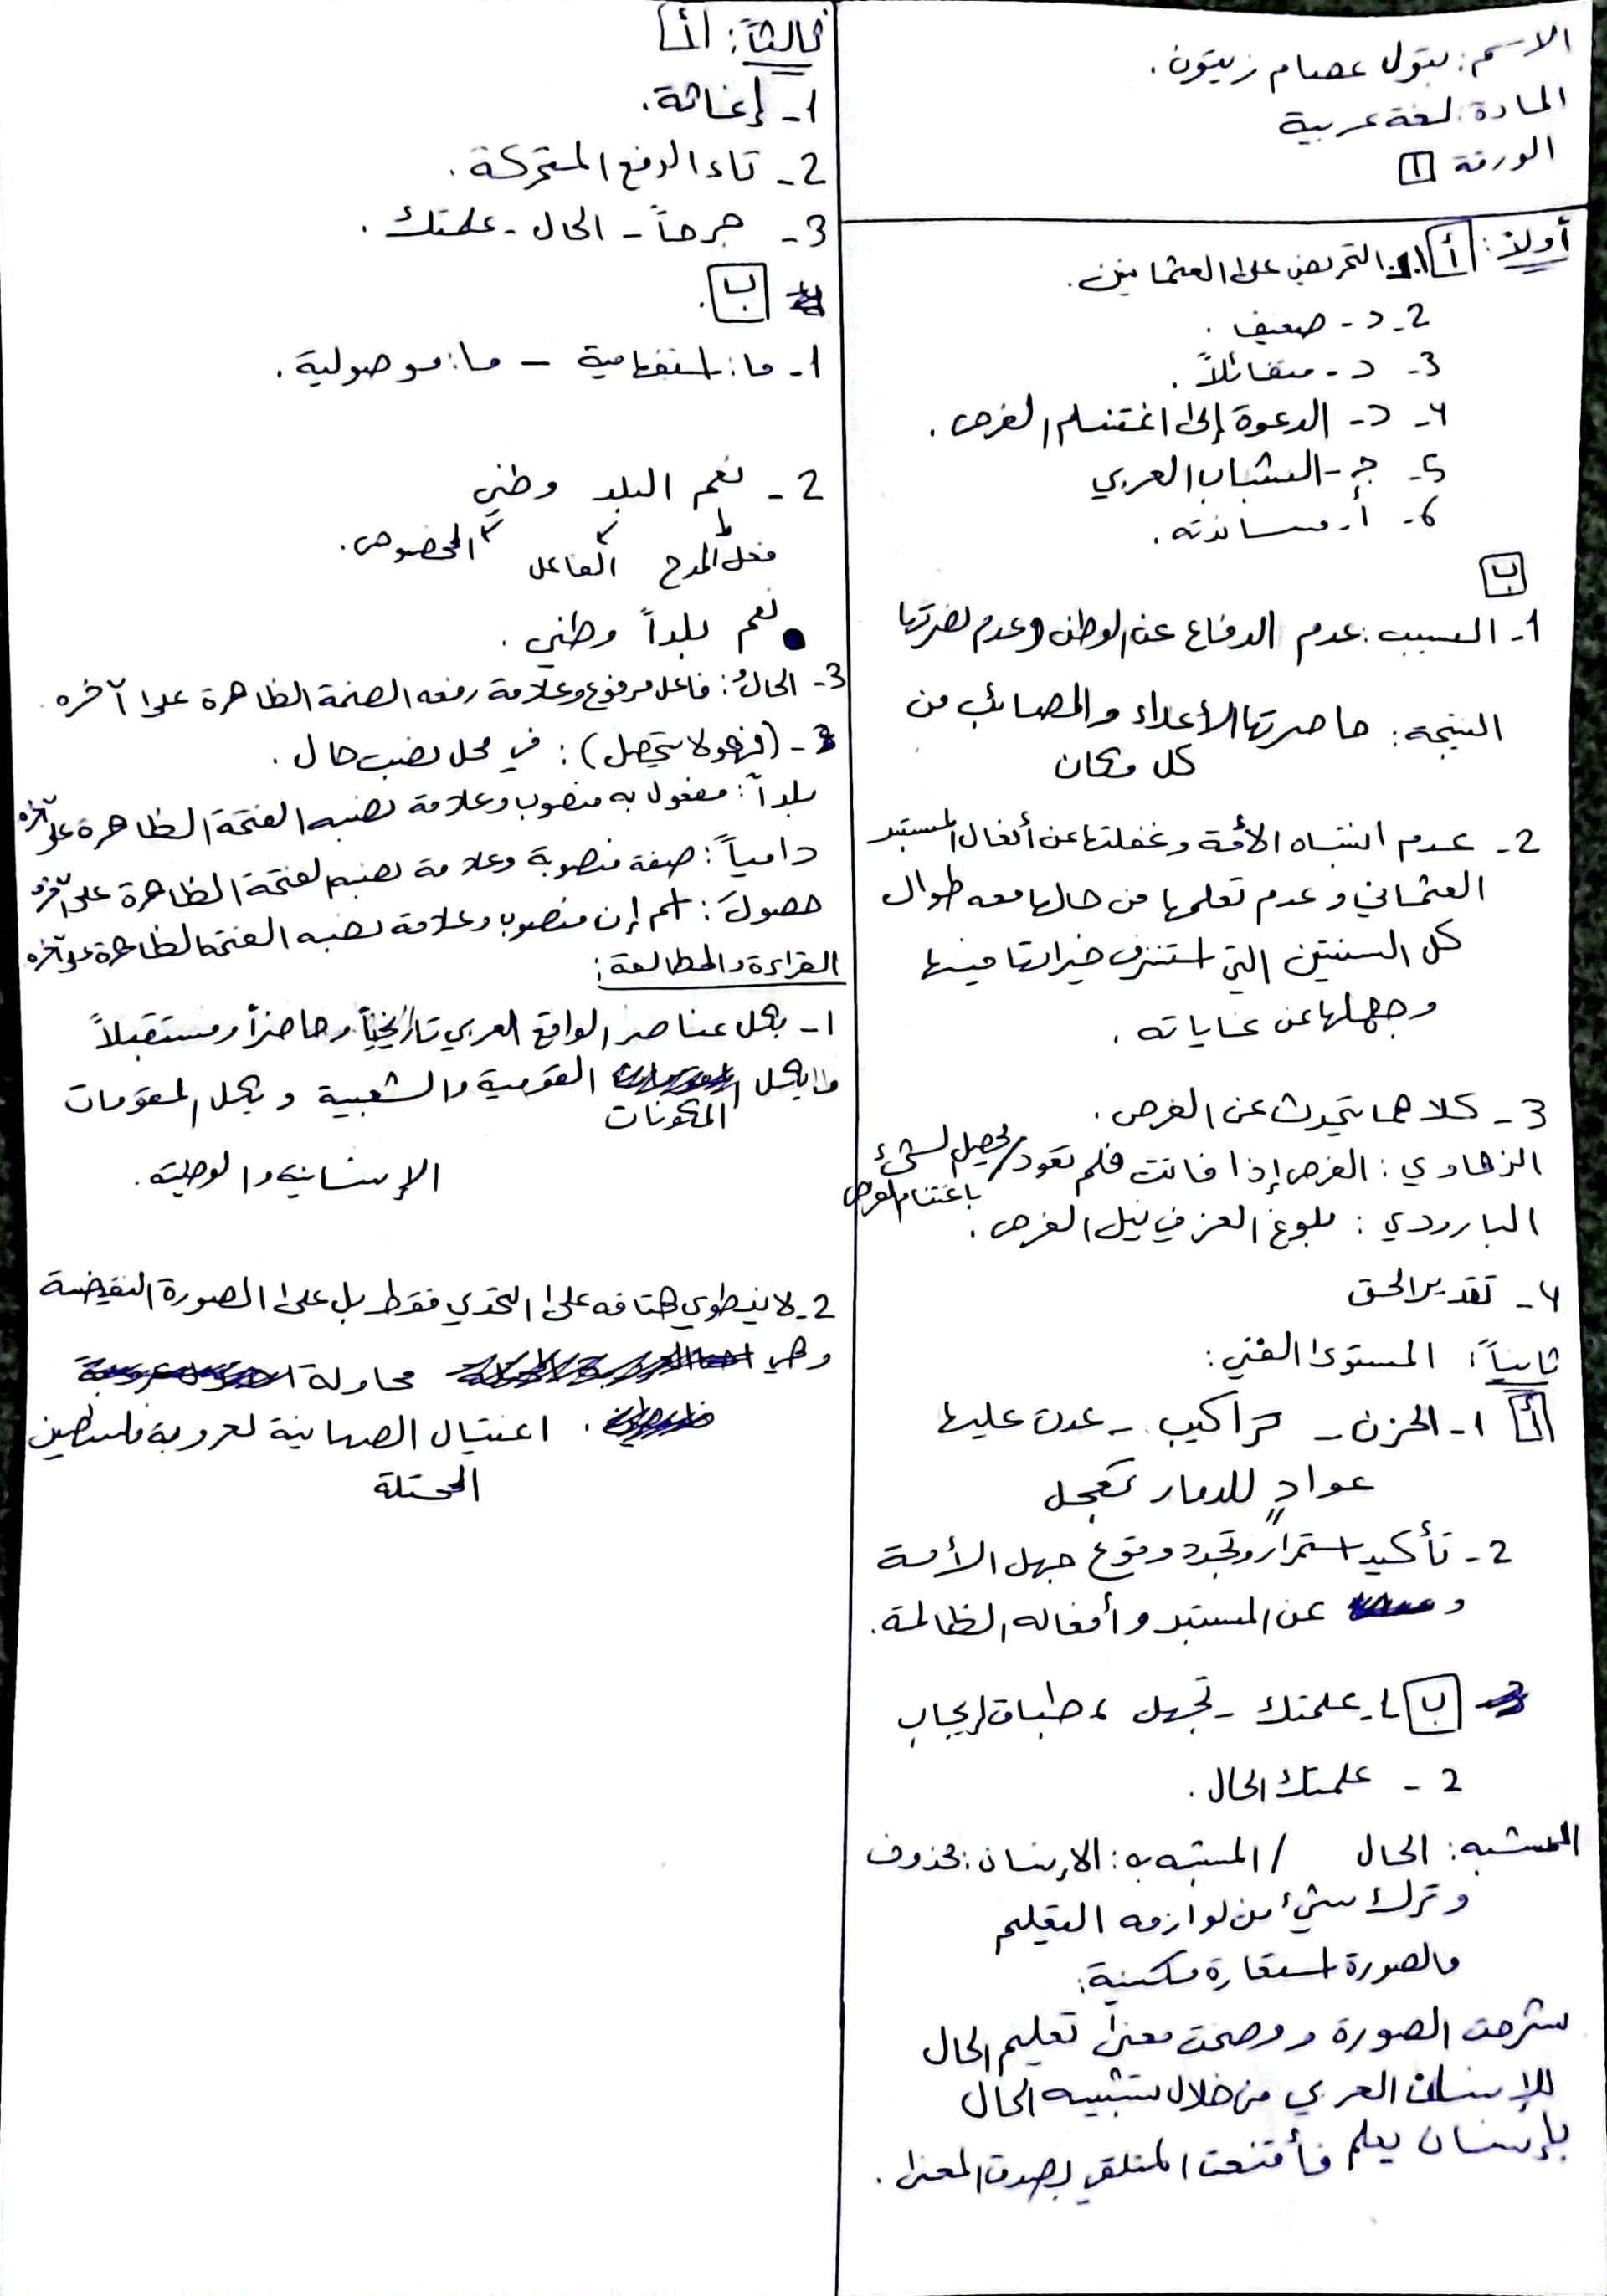 الاسم: بتول عصام زيتون.
المادة: لغة عربية
الورقة 1
أولاً: أ 1. التحريض على العثمانيين.
2- د - ضعيف.
3- د - متفائلاً.
4- د- الدعوة إلى اغتنام الفرص.
5- جـ - الشباب العربي
6- أ- مساندته.
ب
1- السبب: عدم الدفاع عن الوطن وعدم نصرتها
النتيجة: حاصرتها الأعداء والمصائب من
كل مكان
2- عدم انتباه الأمة وغفلتها عن أفعال المستبد
العثماني وعدم تعلمها من حالها معه طوال
كل السنين التي استنزف خيراتها فيها
وجهلها عن غاياته.
3- كلاهما يتحدث عن الفرص.
الزهاوي: الفرص إذا فاتت فلم تعود / يحصل الشيء
باغتنام الفرص
البارودي: بلوغ العز في نيل الفرص.
4- تقدير الحق
ثانياً: المستوى الفني:
أ 1- الحزن - تراكيب - عدت عليها
عوادٍ للدمار تعجل
2- تأكيد استمرار وتجدد وقوع جهل الأمة
و عن المستبد وأفعاله الظالمة.
ب 1- علمتك - تجهل، طباق إيجاب
2- علمتك الحال.
المشبه: الحال / المشبه به: الإنسان: محذوف
وترك شيء من لوازمه التعليم
فالصورة استعارة مكنية:
شرحت الصورة ووضحت معنى تعليم الحال
للإنسان العربي من خلال تشبيه الحال
بإنسان يعلم فأقنعت المتلقي بصدق المعنى.
ثالثاً: أ
1- إغاثة.
2- تاء الرفع المتحركة.
3- جرحاً - الحال - علمتك.
ب.
1- ما: استفهامية - ما: موصولية.
2- نعم البلد وطني
فعل المدح الفاعل المخصوص.
نعم بلداً وطني.
3- الحالُ: فاعل مرفوع وعلامة رفعه الضمة الظاهرة على آخره.
- (فهو لا يحصل): في محل نصب حال.
بلداً: مفعول به منصوب وعلامة نصبه الفتحة الظاهرة على آخره
دامياً: صفة منصوبة وعلامة نصبه الفتحة الظاهرة على آخره
حصولَ: اسم إن منصوب وعلامة نصبه الفتحة الظاهرة على آخره
القراءة والمطالعة:
1- بكل عناصر الواقع العربي تاريخياً وحاضراً ومستقبلاً
وبكل المكونات القومية والشعبية وبكل المقومات
الإنسانية والوطنية.
2- لا ينطوي هتافه على التحدي فقط بل على الصورة النقيضة
وهي محاولة
اغتيال الصهاينة لعروبة فلسطين
المحتلة